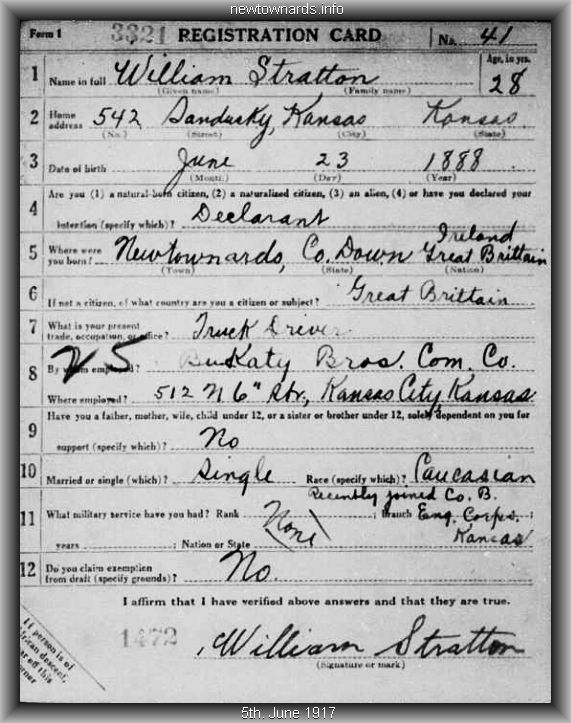 newtownards.info
Form 1 3321 REGISTRATION CARD No. 41
1 Name in full William Stratton Age, in yrs. 28
(Given name) (Family name)
2 Home address 542 Sandusky, Kansas Kansas
(No.) (Street) (City) (State)
3 Date of birth June 23 1888
(Month) (Day) (Year)
Are you (1) a natural-born citizen, (2) a naturalized citizen, (3) an alien, (4) or have you declared your
4 intention (specify which)? Declarant
5 Where were you born? Newtownards, Co. Down Ireland Great Brittain
(Town) (State) (Nation)
6 If not a citizen, of what country are you a citizen or subject? Great Brittain
7 What is your present trade, occupation, or office? Truck Driver
8 By whom employed? BuKaty Bros. Com. Co.
25
Where employed? 512 N 6" Str, Kansas City Kansas
Have you a father, mother, wife, child under 12, or a sister or brother under 12, solely dependent on you for
9 support (specify which)? No
10 Married or single (which)? Single Race (specify which)? Caucasian
Recently joined Co. B.
11 What military service have you had? Rank None ; Branch Eng. Corps.
years ; Nation or State Kansas
12 Do you claim exemption from draft (specify grounds)? No.
I affirm that I have verified above answers and that they are true.
1472
William Stratton
(Signature or mark)
person is of
African descent,
off this
corner
5th. June 1917